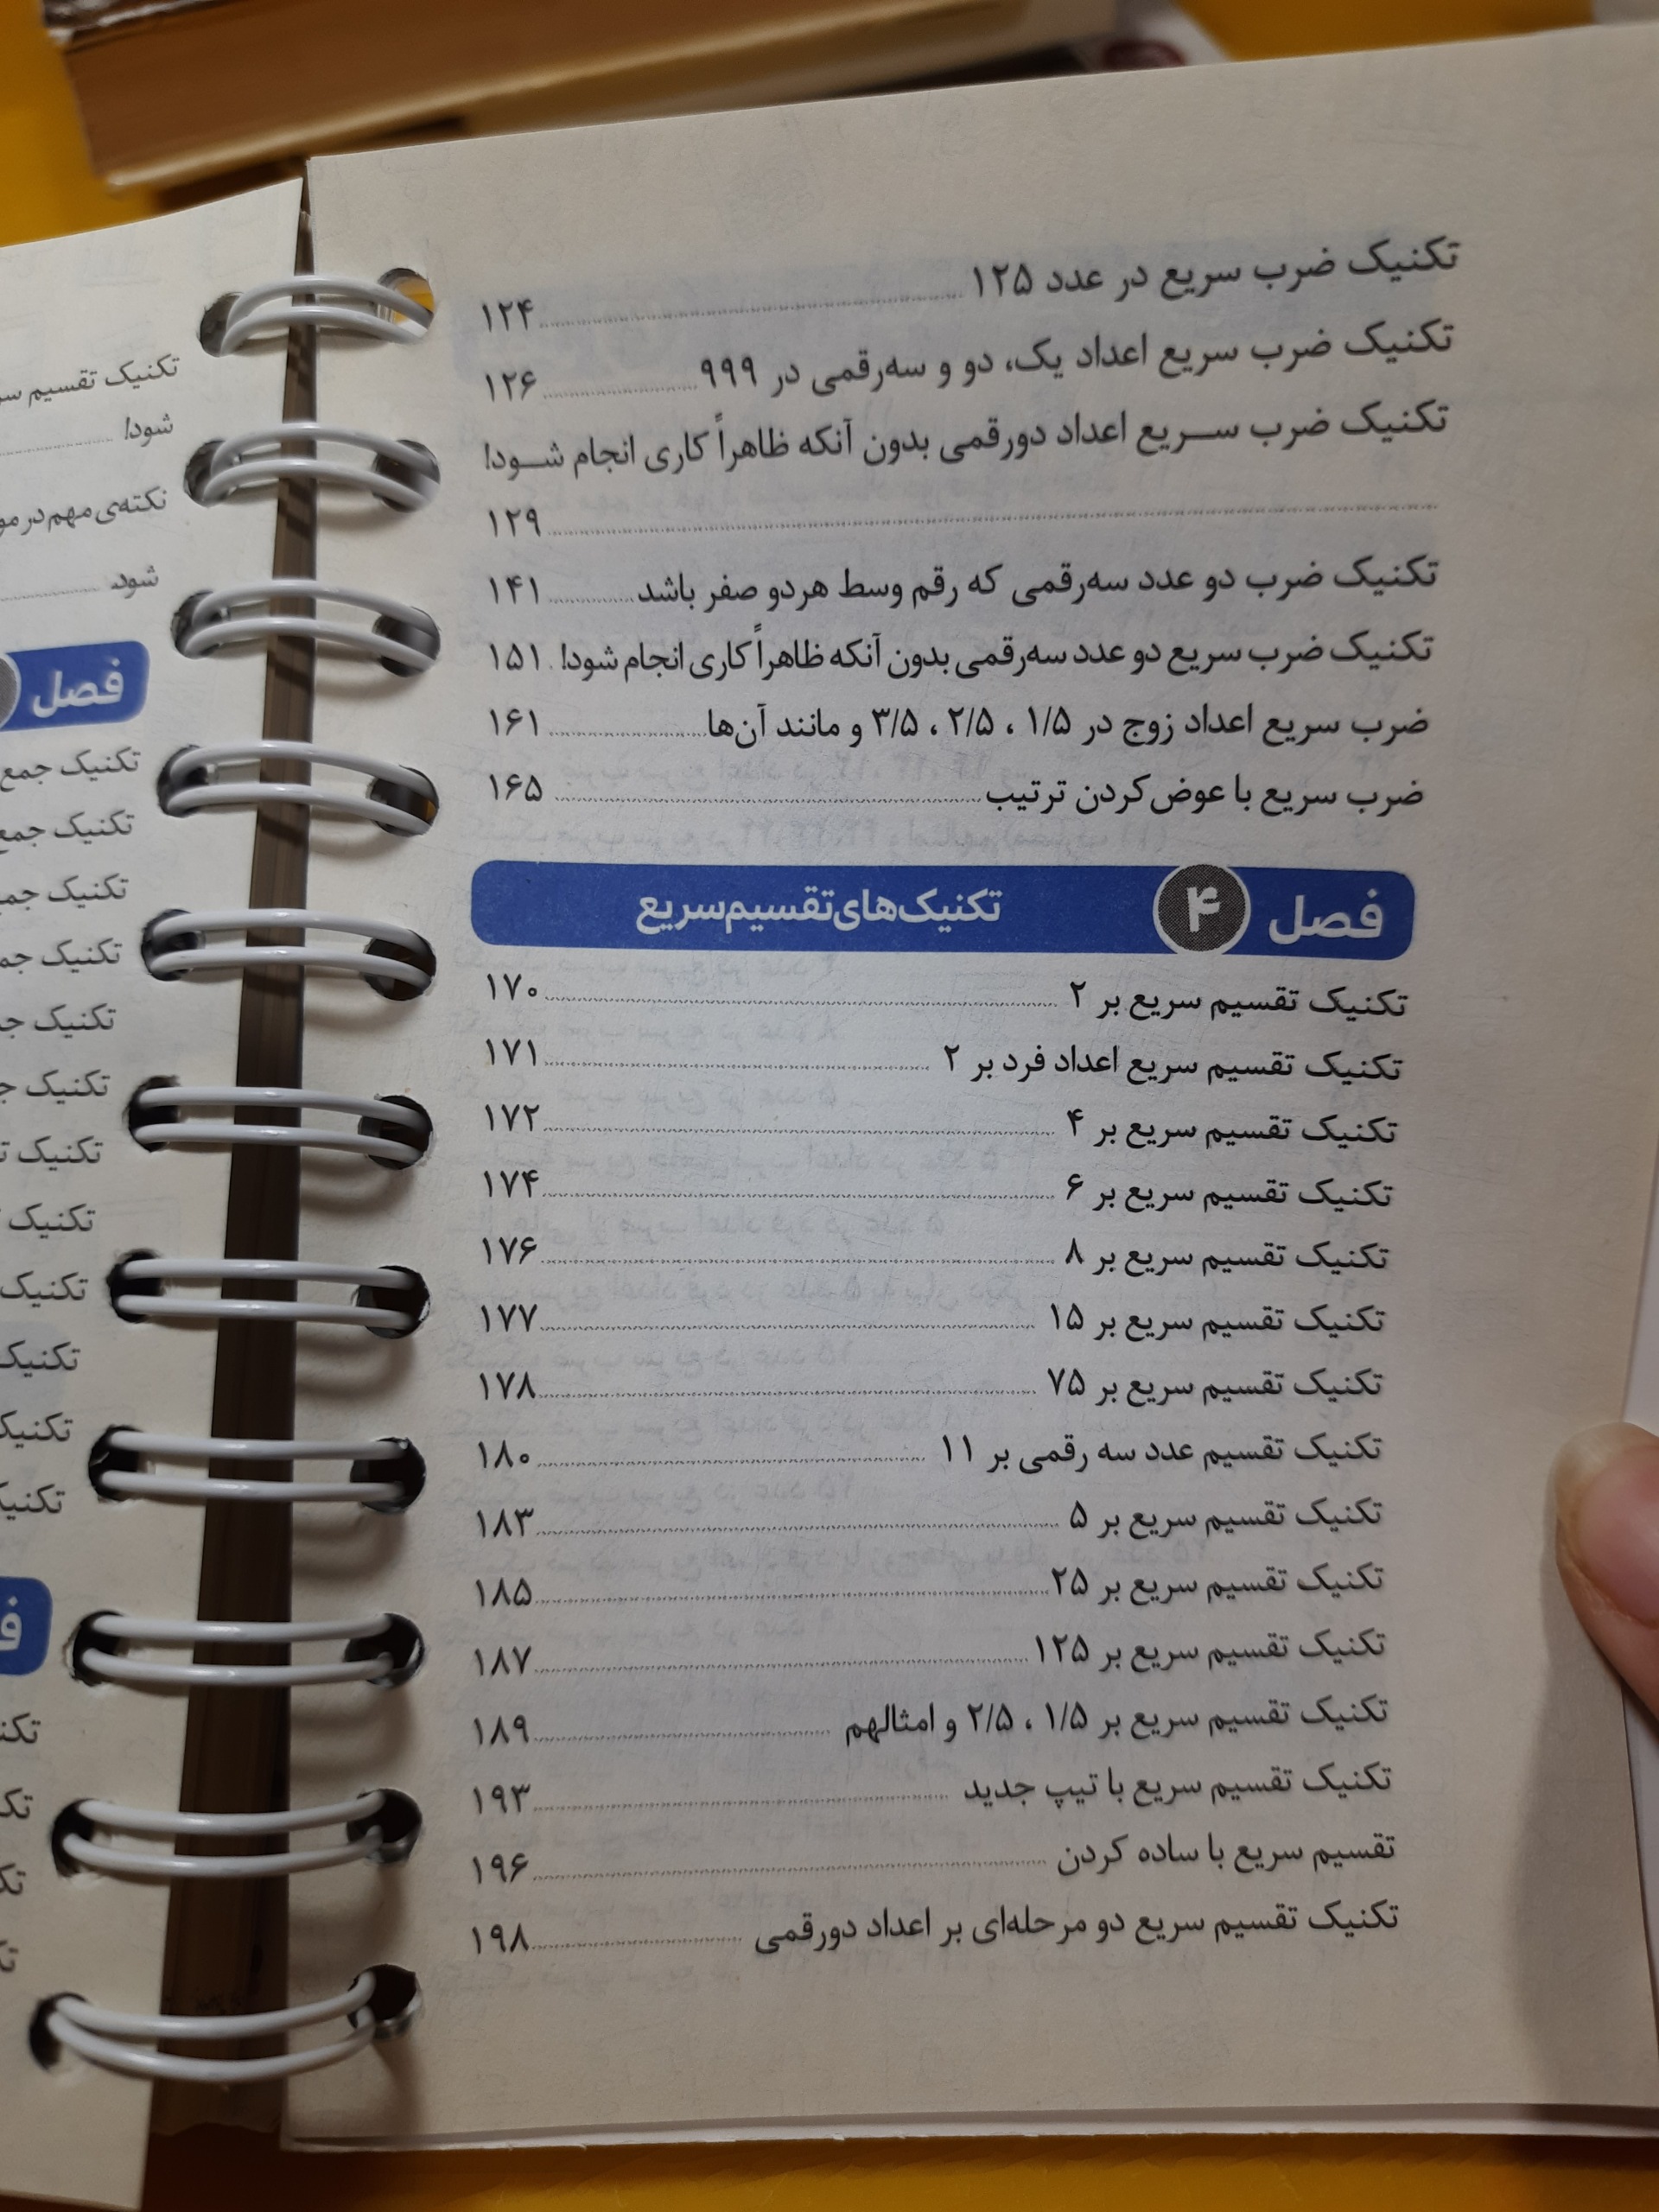 تکنیک ضرب سریع در عدد ۱۲۵ ۱۲۴
تکنیک ضرب سریع اعداد یک، دو و سه‌رقمی در ۹۹۹ ۱۲۶
تکنیک ضرب سریع اعداد دورقمی بدون آنکه ظاهراً کاری انجام شود!
۱۲۹
تکنیک ضرب دو عدد سه‌رقمی که رقم وسط هردو صفر باشد ۱۴۱
تکنیک ضرب سریع دو عدد سه‌رقمی بدون آنکه ظاهراً کاری انجام شود! ۱۵۱
ضرب سریع اعداد زوج در ۱/۵ ، ۲/۵ ، ۳/۵ و مانند آن‌ها ۱۶۱
ضرب سریع با عوض‌کردن ترتیب ۱۶۵
فصل ۴ تکنیک‌های تقسیم سریع
تکنیک تقسیم سریع بر ۲ ۱۷۰
تکنیک تقسیم سریع اعداد فرد بر ۲ ۱۷۱
تکنیک تقسیم سریع بر ۴ ۱۷۲
تکنیک تقسیم سریع بر ۶ ۱۷۴
تکنیک تقسیم سریع بر ۸ ۱۷۶
تکنیک تقسیم سریع بر ۱۵ ۱۷۷
تکنیک تقسیم سریع بر ۷۵ ۱۷۸
تکنیک تقسیم عدد سه رقمی بر ۱۱ ۱۸۰
تکنیک تقسیم سریع بر ۵ ۱۸۳
تکنیک تقسیم سریع بر ۲۵ ۱۸۵
تکنیک تقسیم سریع بر ۱۲۵ ۱۸۷
تکنیک تقسیم سریع بر ۱/۵ ، ۲/۵ و امثالهم ۱۸۹
تکنیک تقسیم سریع با تیپ جدید ۱۹۳
تقسیم سریع با ساده کردن ۱۹۶
تکنیک تقسیم سریع دو مرحله‌ای بر اعداد دورقمی ۱۹۸
تکنیک تقسیم
شود!
نکته‌ی مهم در
شود.
فصل
تکنیک جمع
تکنیک جمع
تکنیک
تکنیک
تکنیک
تکنیک
تکنیک
تکنیک
تکنیک
تکنیک